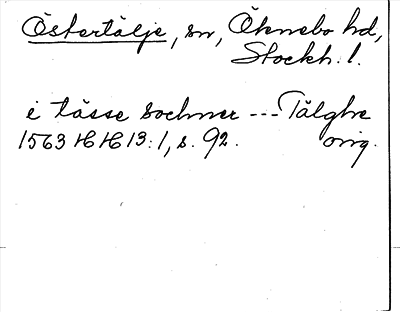 Östertälje, sn, Öknebo hd,
Stockh. l.
i tässe sochner --- Tälghe
1563 HH 13:1, s. 92. orig.